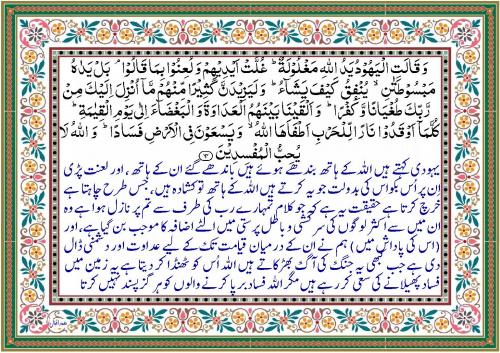 وَقَالَتِ الْيَهُوْدُ يَدُ اللّٰهِ مَغْلُوْلَةٌ ؕ غُلَّتْ اَيْدِيْهِمْ وَلُعِنُوْا بِمَا قَالُوْا ۘ بَلْ يَدٰهُ
مَبْسُوْطَتٰنِ ۙ يُنْفِقُ كَيْفَ يَشَآءُ ؕ وَلَيَزِيْدَنَّ كَثِيْرًا مِّنْهُمْ مَّاۤ اُنْزِلَ اِلَيْكَ مِنْ
رَّبِّكَ طُغْيَانًا وَّكُفْرًا ؕ وَاَلْقَيْنَا بَيْنَهُمُ الْعَدَاوَةَ وَالْبَغْضَآءَ اِلٰى يَوْمِ الْقِيٰمَةِ ؕ
كُلَّمَاۤ اَوْقَدُوْا نَارًا لِّلْحَرْبِ اَطْفَاَهَا اللّٰهُ ۙ وَيَسْعَوْنَ فِى الْاَرْضِ فَسَادًا ؕ وَاللّٰهُ لَا
يُحِبُّ الْمُفْسِدِيْنَ
یہودی کہتے ہیں اللہ کے ہاتھ بندھے ہوئے ہیں باندھے گئے ان کے ہاتھ، اور لعنت پڑی
ان پر اُس بکواس کی بدولت جو یہ کرتے ہیں اللہ کے ہاتھ تو کشادہ ہیں، جس طرح چاہتا ہے
خرچ کرتا ہے حقیقت یہ ہے کہ جو کلام تمہارے رب کی طرف سے تم پر نازل ہوا ہے وہ
ان میں سے اکثر لوگوں کی سرکشی و باطل پرستی میں الٹے اضافہ کا موجب بن گیا ہے، اور
(اس کی پاداش میں) ہم نے ان کے درمیان قیامت تک کے لیے عداوت اور دشمنی ڈال
دی ہے جب کبھی یہ جنگ کی آگ بھڑکاتے ہیں اللہ اُس کو ٹھنڈا کر دیتا ہے یہ زمین میں
فساد پھیلانے کی سعی کر رہے ہیں مگر اللہ فساد برپا کرنے والوں کو ہرگز پسند نہیں کرتا